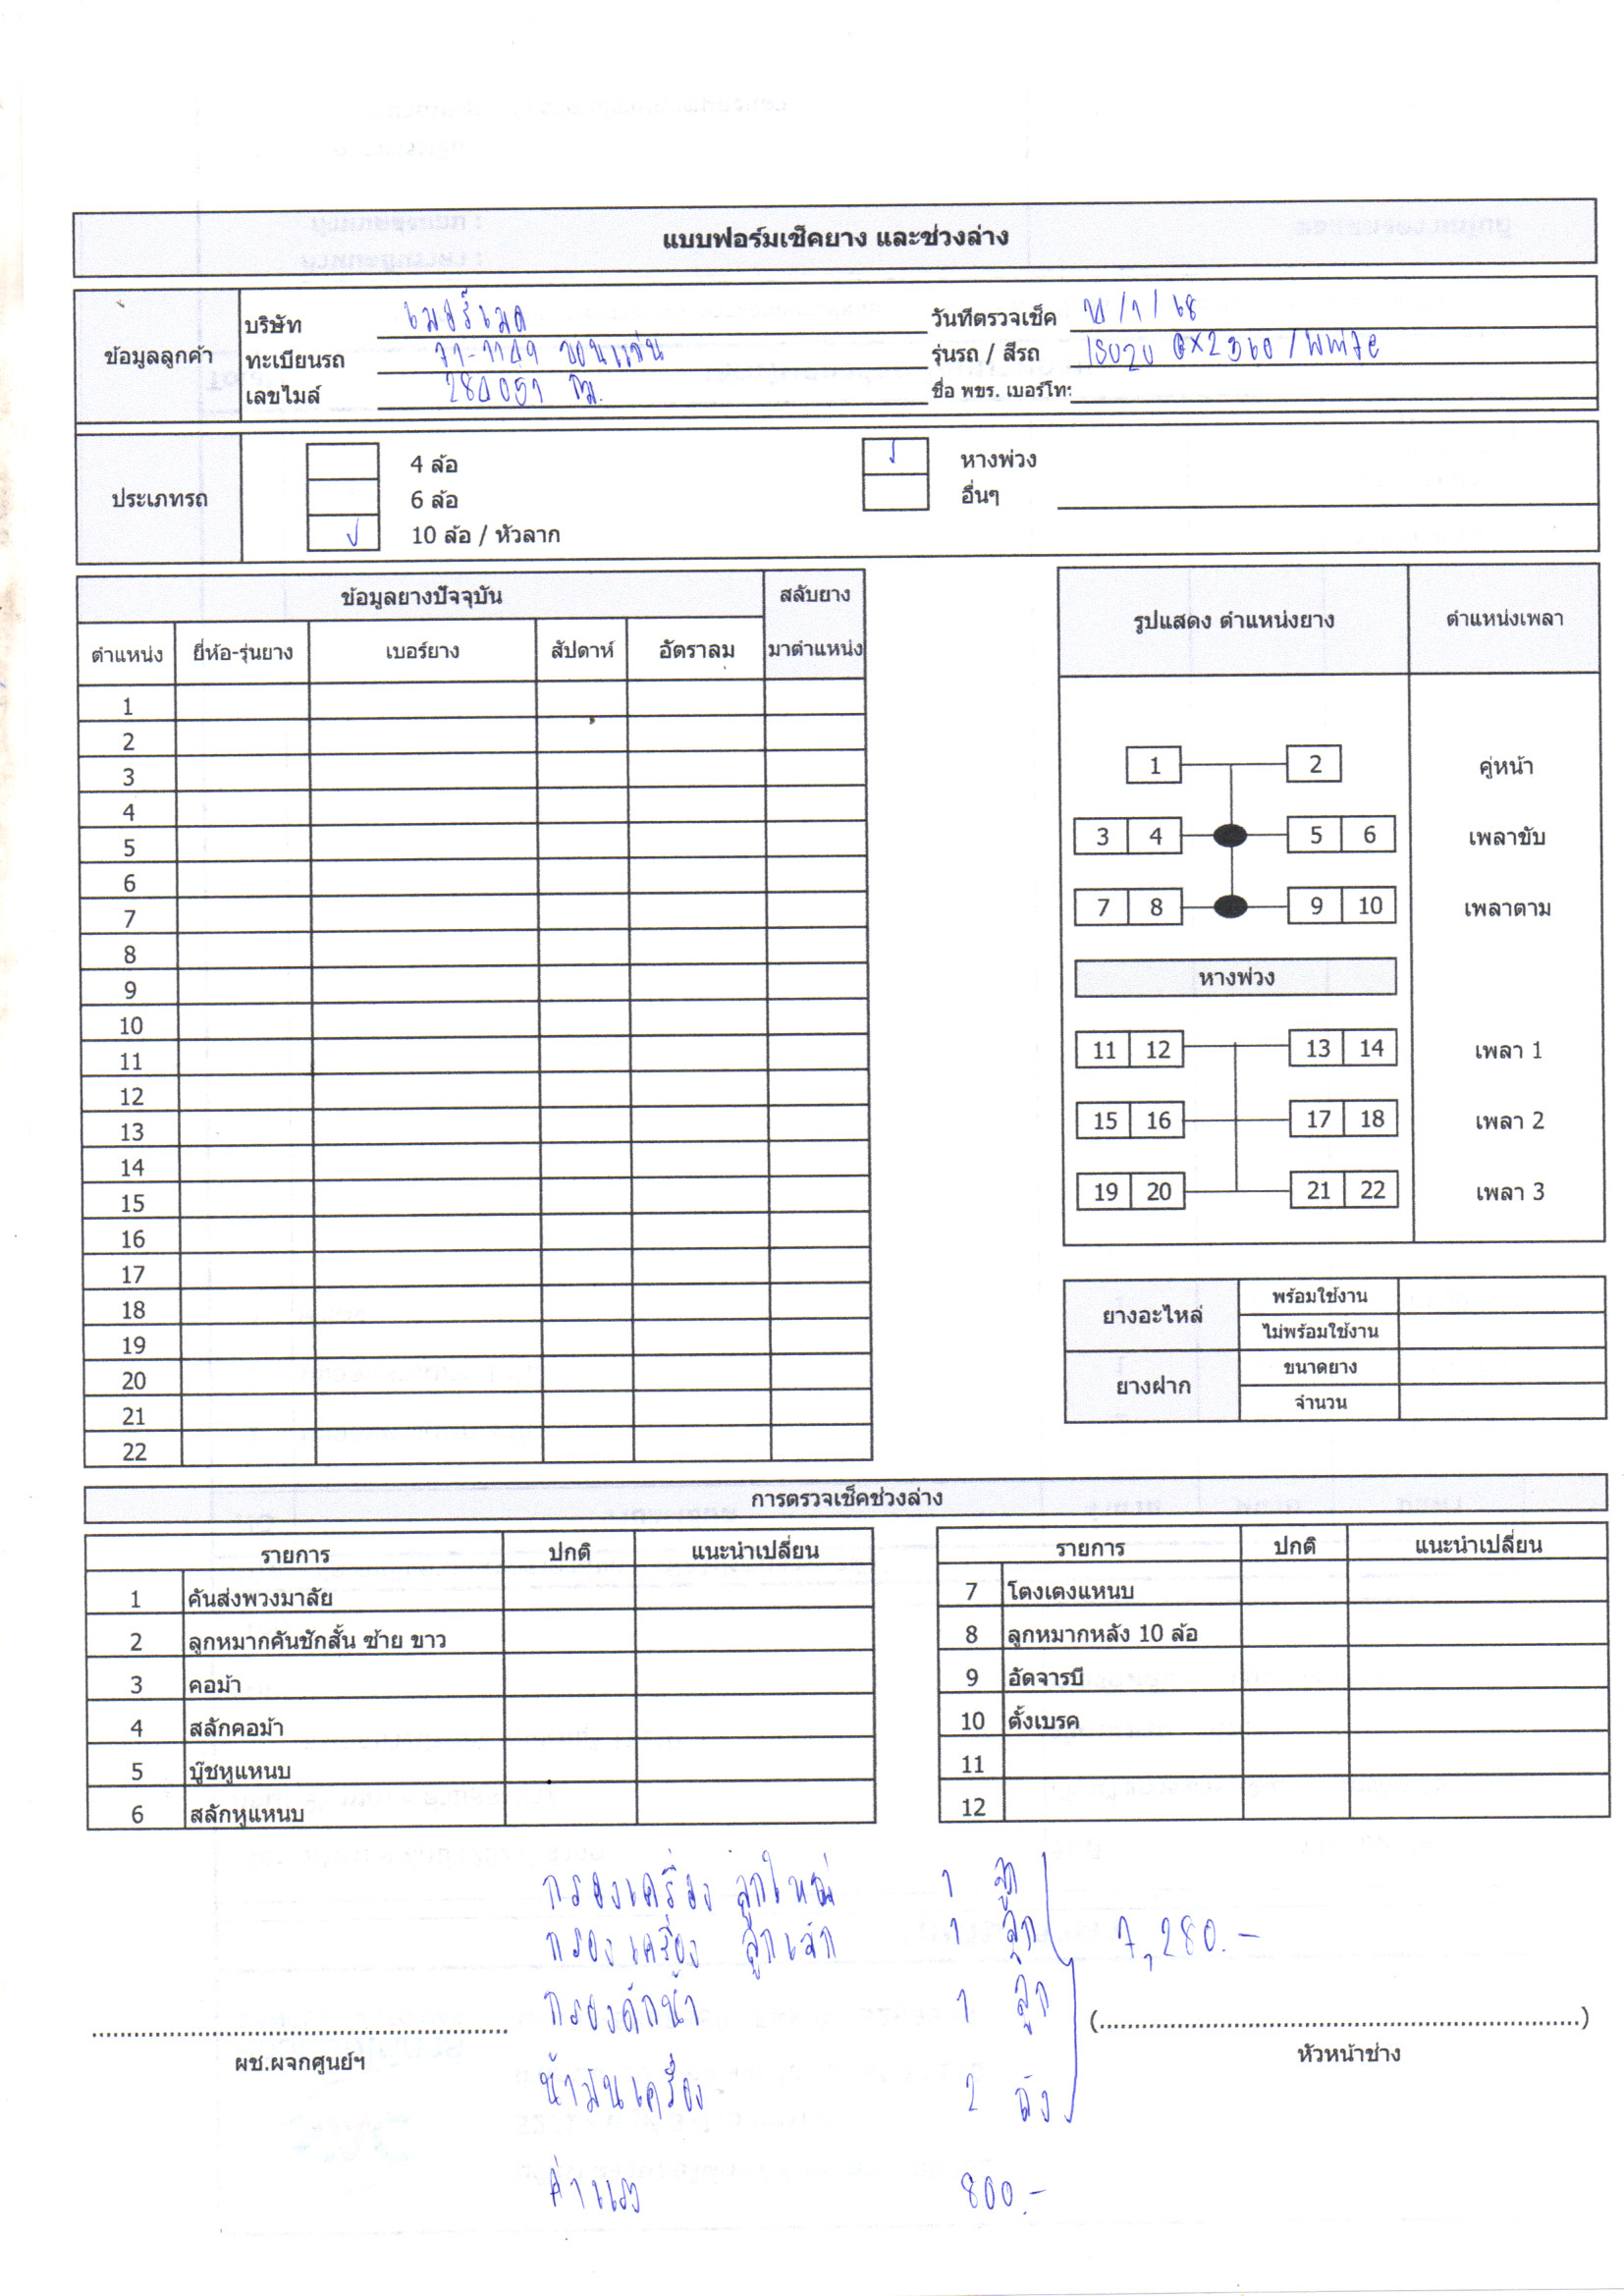 แบบฟอร์มเช็คยาง และช่วงล่าง
ข้อมูลลูกค้า
บริษัท เมอร์เมด
วันที่ตรวจเช็ค /1/68
ทะเบียนรถ ขอนแก่น
รุ่นรถ / สีรถ ISUZU GXZ 360 / White
เลขไมล์ กม.
ชื่อ พขร. เบอร์โท:
ประเภทรถ
4 ล้อ
6 ล้อ
✓ 10 ล้อ / หัวลาก
✓ หางพ่วง
อื่นๆ
ข้อมูลยางปัจจุบัน สลับยาง
ตำแหน่ง ยี่ห้อ-รุ่นยาง เบอร์ยาง สัปดาห์ อัตราลม มาตำแหน่ง
1
2
3
4
5
6
7
8
9
10
11
12
13
14
15
16
17
18
19
20
21
22
รูปแสดง ตำแหน่งยาง ตำแหน่งเพลา
1 2 คู่หน้า
3 4 5 6 เพลาขับ
7 8 9 10 เพลาตาม
หางพ่วง
11 12 13 14 เพลา 1
15 16 17 18 เพลา 2
19 20 21 22 เพลา 3
ยางอะไหล่ พร้อมใช้งาน
ไม่พร้อมใช้งาน
ยางฝาก ขนาดยาง
จำนวน
การตรวจเช็คช่วงล่าง
รายการ ปกติ แนะนำเปลี่ยน
1 คันส่งพวงมาลัย
2 ลูกหมากคันชักสั้น ซ้าย ขาว
3 คอม้า
4 สลักคอม้า
5 บู๊ชหูแหนบ
6 สลักหูแหนบ
รายการ ปกติ แนะนำเปลี่ยน
7 โตงเตงแหนบ
8 ลูกหมากหลัง 10 ล้อ
9 อัดจารบี
10 ตั้งเบรค
11
12
กรองเครื่อง ลูกใหญ่ 1 ลูก
กรองเครื่อง ลูกเล็ก 1 ลูก 7,280.-
กรองดักน้ำ 1 ลูก
น้ำมันเครื่อง 2 ถัง
ค่าแรง 800.-
ผช.ผจกศูนย์ฯ
(..........)
หัวหน้าช่าง